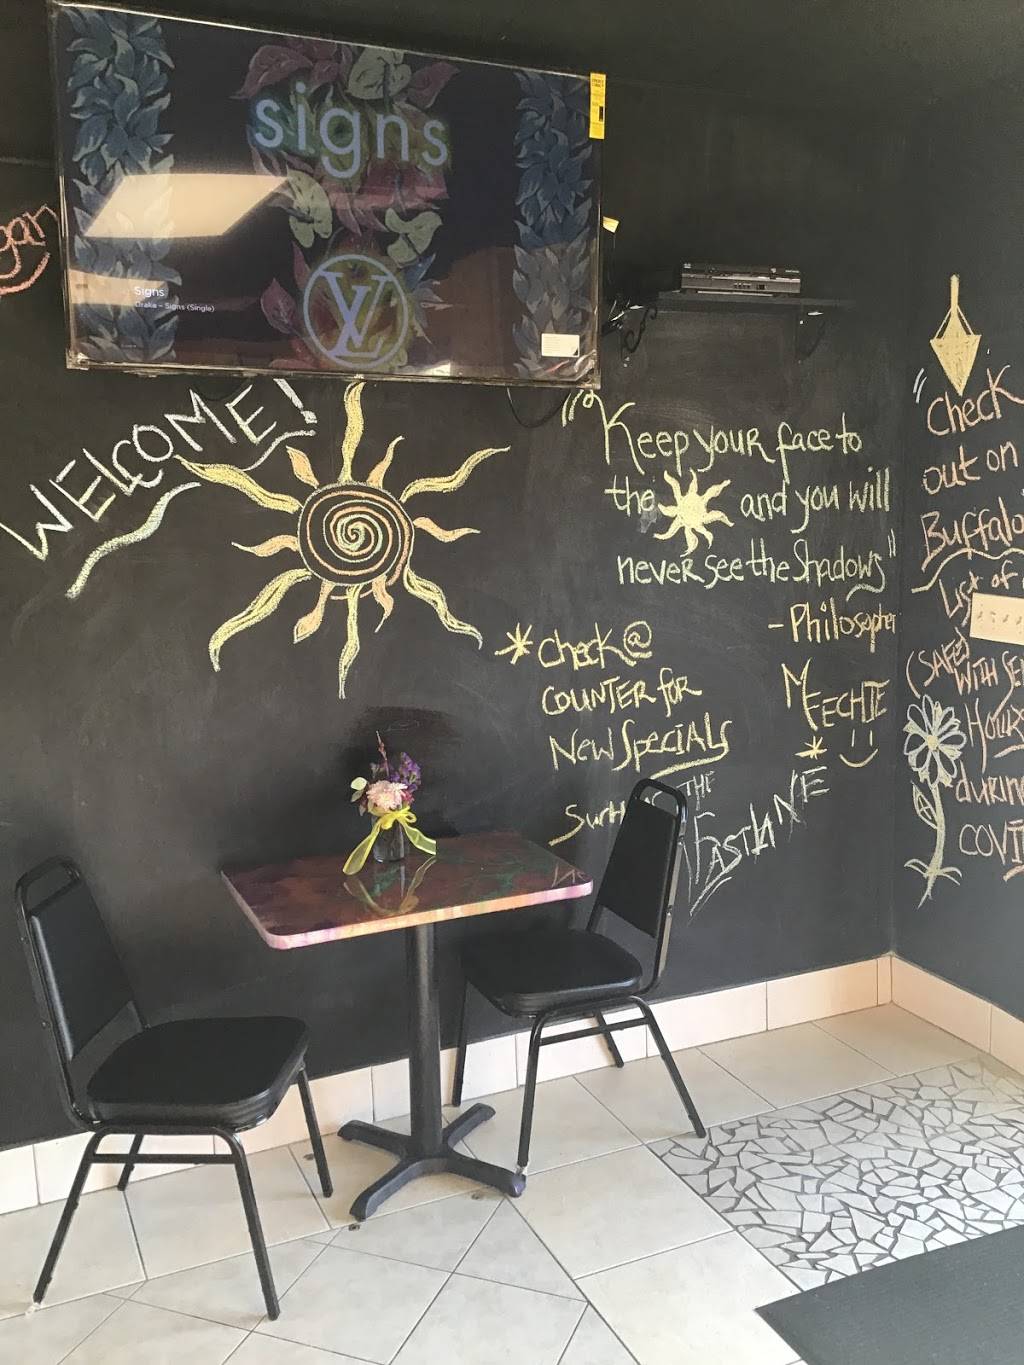 signs
LV
Signs
Draka - Signs (Single)
gan
WELCOME!
"Keep your face to
the and you will
never see the Shadows"
- Philosopher
MEECHIE
* Check @
COUNTER for
New SPECIALS
THE
FASTLANE
"Check
out on
Buffalo
List of
(SAFELY
WITH
HOURS
DURING
COVI